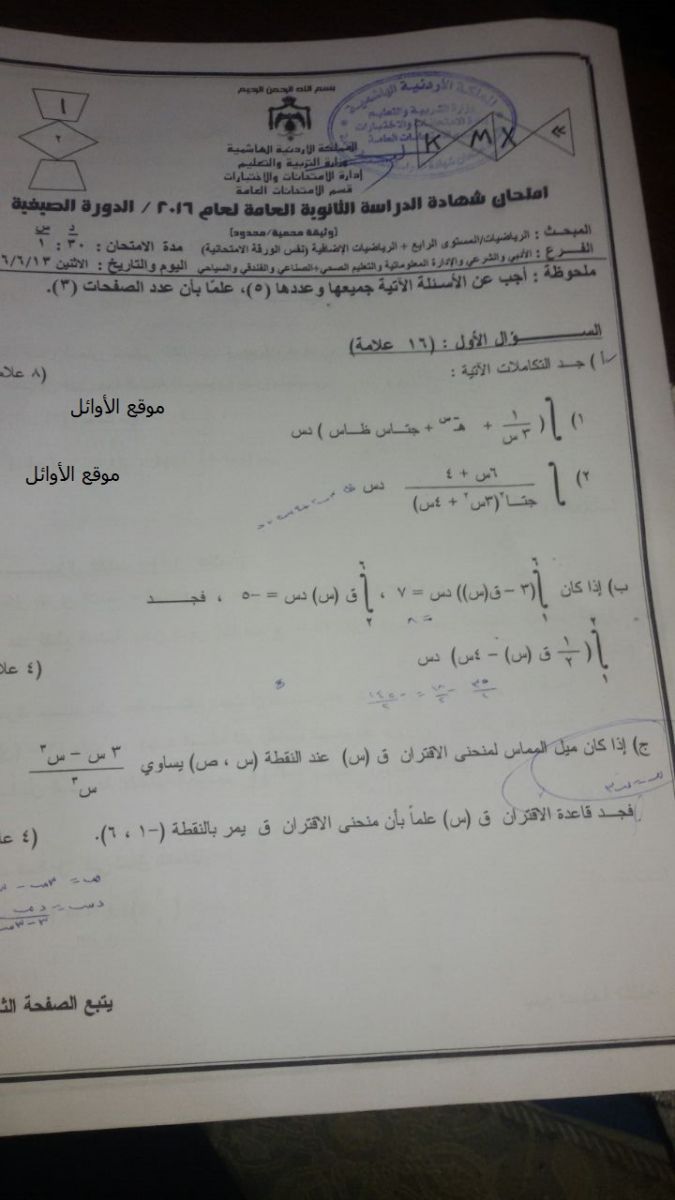 بسم الله الرحمن الرحيم
١
٢
المملكة الأردنية الهاشمية
وزارة التربية والتعليم
إدارة الامتحانات والاختبارات
قسم الامتحانات العامة
K M X »
المملكة الأردنية الهاشمية
وزارة التربية والتعليم
إدارة الامتحانات والاختبارات
امتحان شهادة الدراسة الثانوية العامة لعام ٢٠١٦ / الدورة الصيفية
(وثيقة محمية/محدود)
المبحث : الرياضيات/المستوى الرابع + الرياضيات الإضافية (نفس الورقة الامتحانية) مدة الامتحان : ٣٠ : ١
د س
الفرع : الأدبي والشرعي والإدارة المعلوماتية والتعليم الصحي+الصناعي والفندقي والسياحي اليوم والتاريخ : الاثنين ٦/٦/١٣
ملحوظة : أجب عن الأسئلة الآتية جميعها وعددها (٥)، علمًا بأن عدد الصفحات (٣).
الســـؤال الأول : (١٦ علامة)
أ ) جد التكاملات الآتية : (٨ علا
موقع الأوائل
١) ∫ ( ١/٣س + هـ⁻ˢ + جتاس ظاس ) دس
موقع الأوائل
٢) ∫ (٦س + ٤)/(جتا²(٣س² + ٤س)) دس
ب) إذا كان ∫₁⁶ (٣ – ق(س)) دس = ٧ ، ∫₂⁶ ق (س) دس = –٥ ، فجـــد
∫₁² ( ١/٢ ق (س) – ٤س) دس (٤ علا
ج) إذا كان ميل المماس لمنحنى الاقتران ق (س) عند النقطة (س ، ص) يساوي (٣ س – س³)/س³
فجد قاعدة الاقتران ق (س) علماً بأن منحنى الاقتران ق يمر بالنقطة (–١ ، ٦). (٤ علا
يتبع الصفحة الث